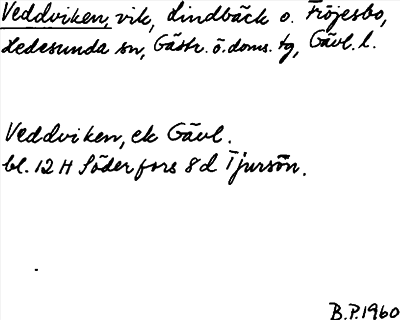 Veddviken, vik, Lindbäck o. Fröjesbo,
Hedesunda sn, Gästr. ö. doms. tg, Gävl. l.
Veddviken, ek Gävl.
bl. 12 H Söderfors 8 d Tjursön.
B.P. 1960